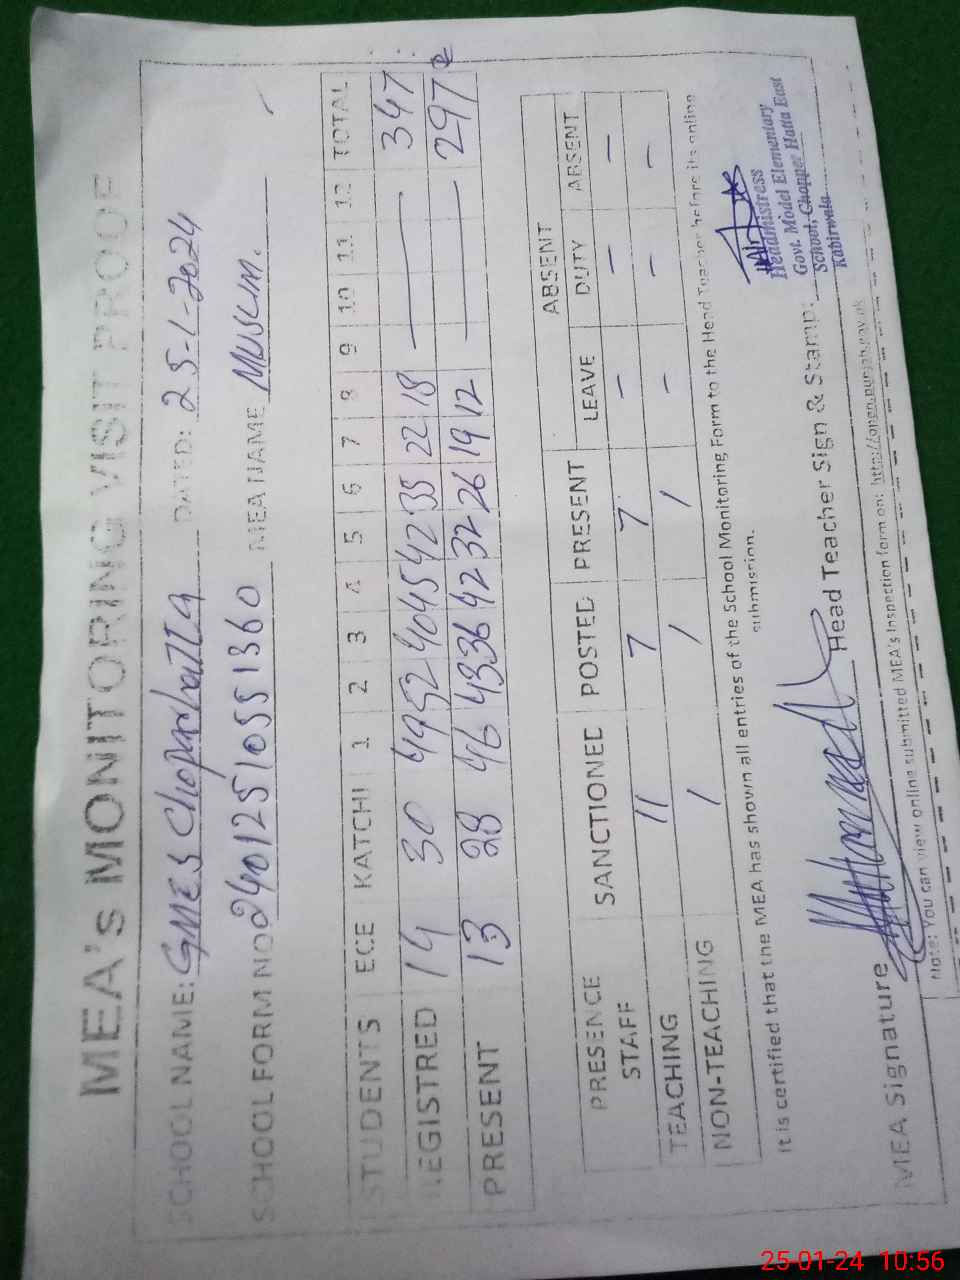 MEA's MONITORING VISIT PROOF
SCHOOL NAME: GMES Choparhatta DATED: 25-1-2024
SCHOOL FORM NO 24012510551360 MEA NAME Muslim.
STUDENTS ECE KATCHI 1 2 3 4 5 6 7 8 9 10 11 12 TOTAL
REGISTRED 14 30 49 52 40 45 42 35 22 18 — — 347
PRESENT 13 28 46 43 36 42 32 26 19 12 — — 297
ABSENT
PRESENCE SANCTIONED POSTED PRESENT LEAVE DUTY ABSENT
STAFF
TEACHING 11 7 7 - - -
NON-TEACHING 1 1 1 - - -
It is certified that the MEA has shown all entries of the School Monitoring Form to the Head Teacher before its online
submission.
Headmistress
Govt. Model Elementary
School, Chopper Hatta East
Kabirwala
MEA Signature Head Teacher Sign & Stamp:
Note: You can view online submitted MEA's Inspection form on: http://open.punjab.gov.pk
25-01-24 10:56